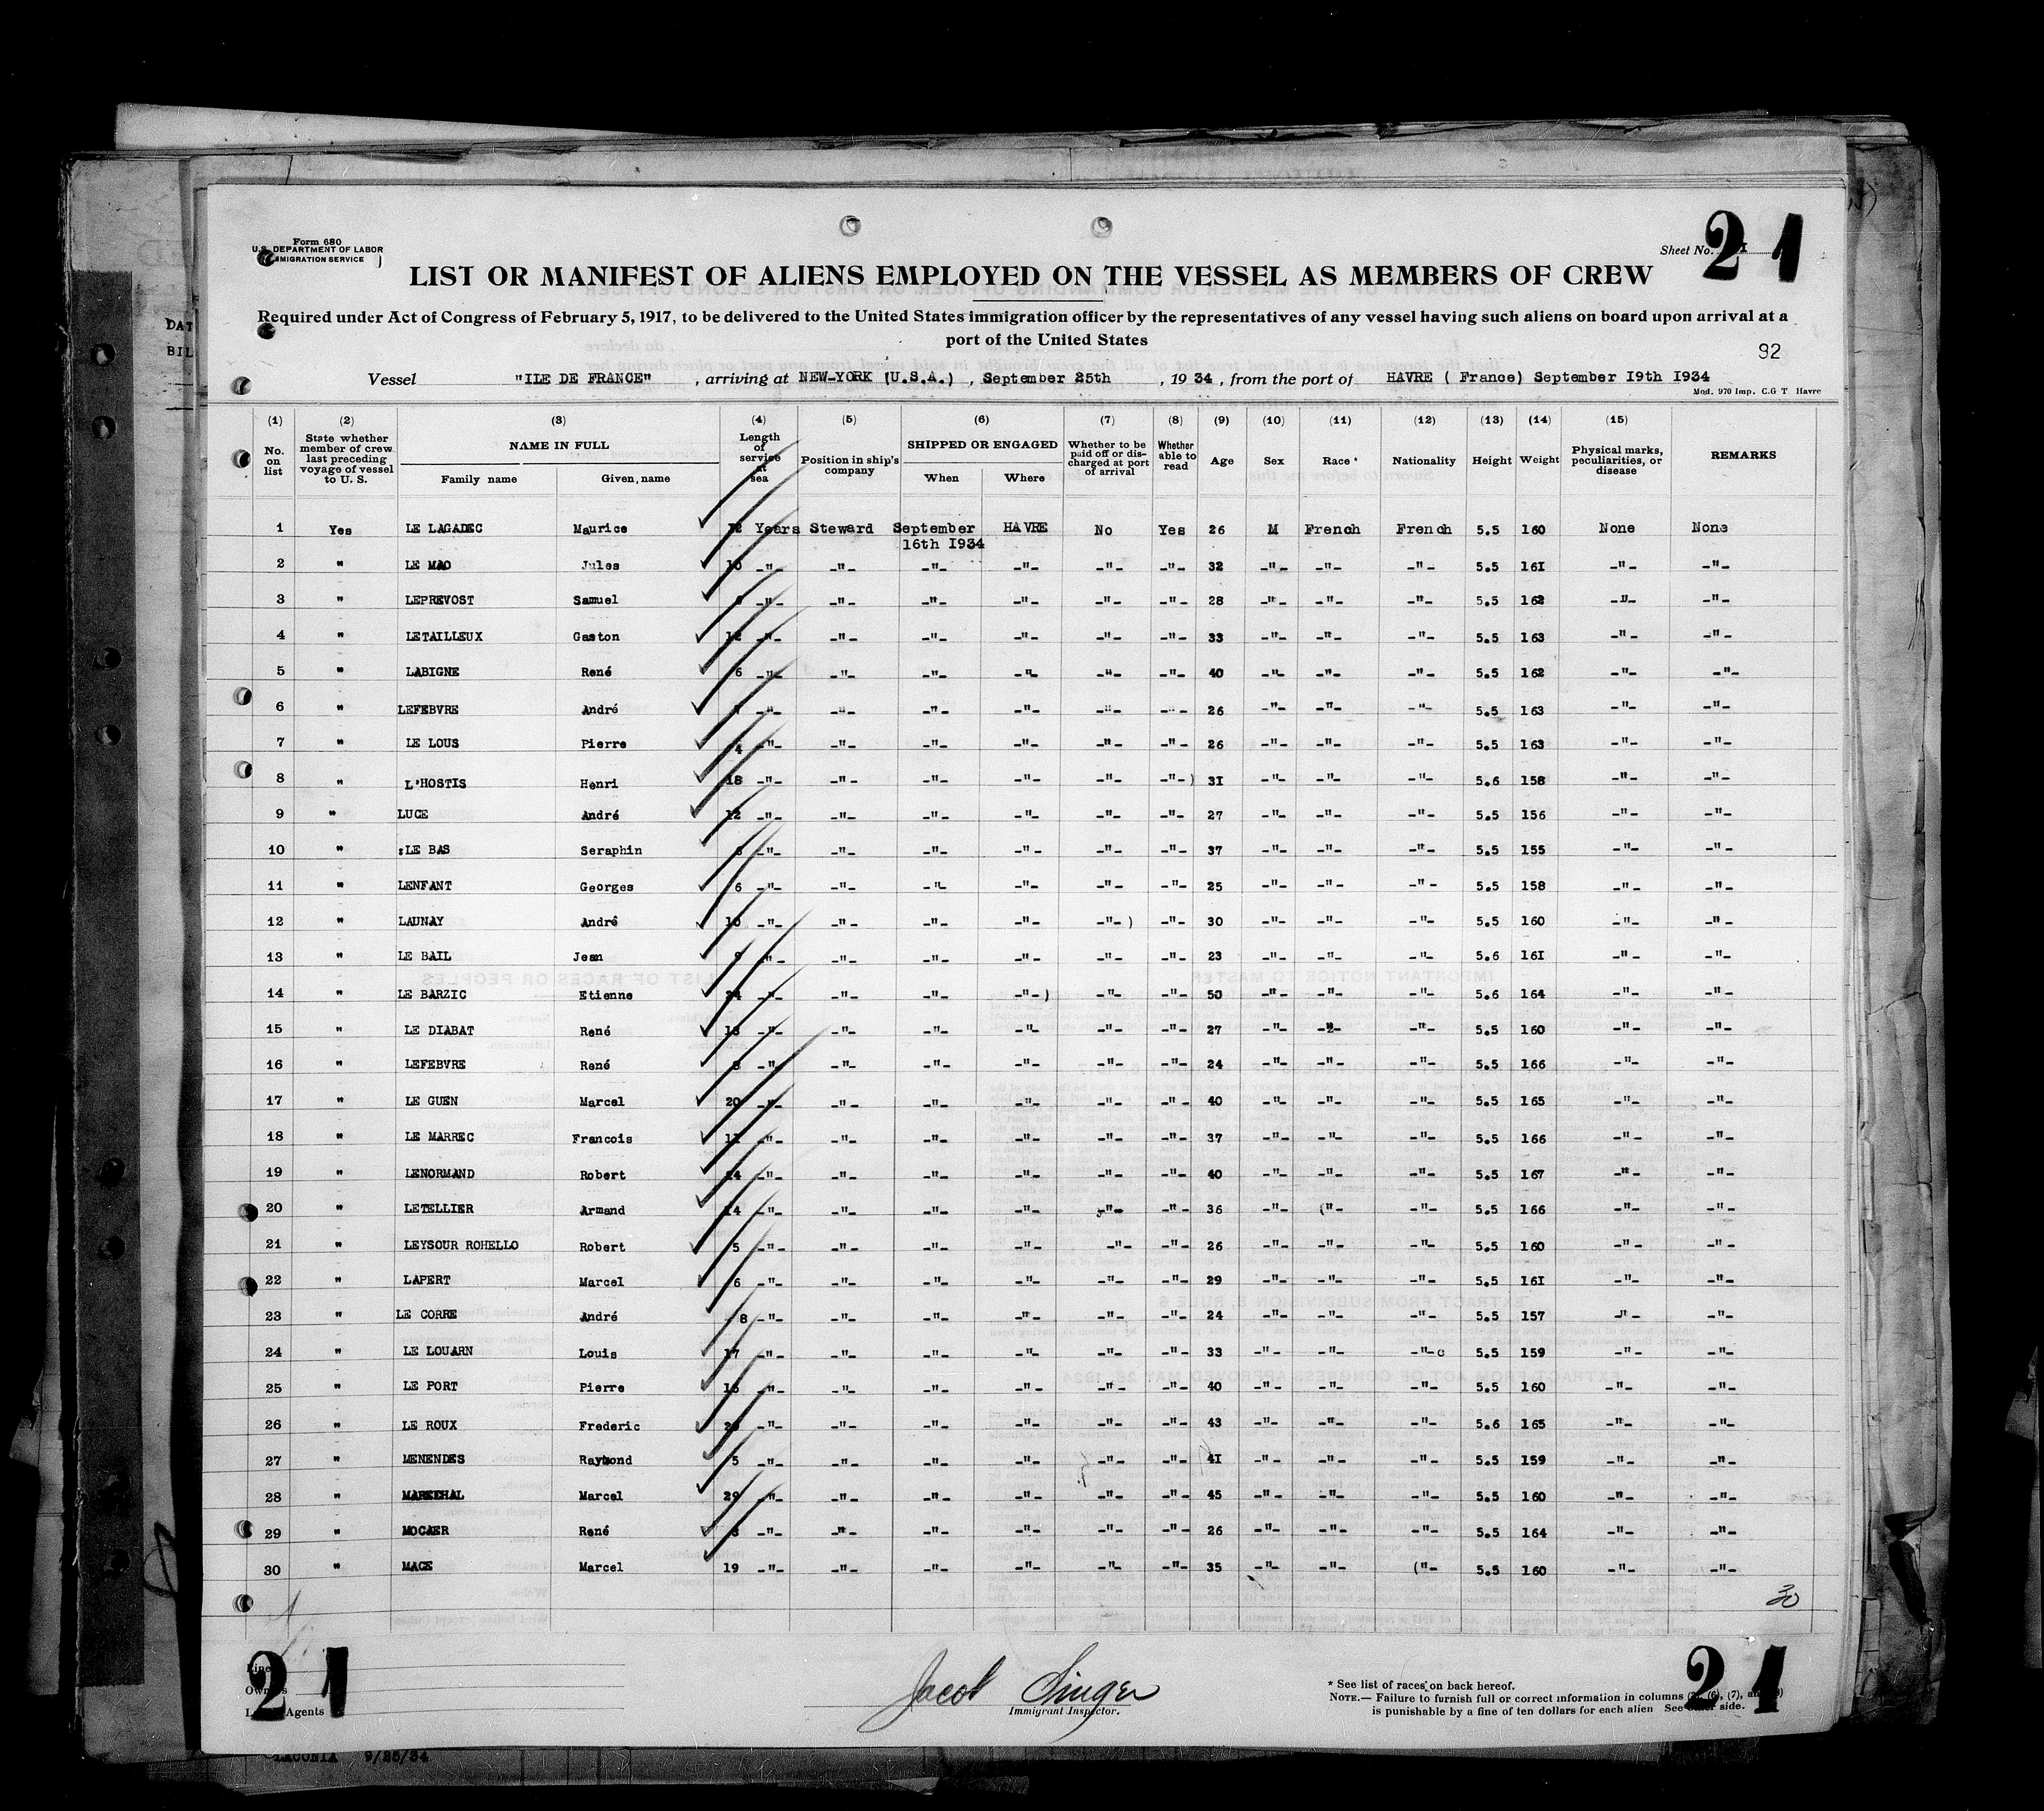 Form 680
U.S. DEPARTMENT OF LABOR
IMMIGRATION SERVICE
Sheet No.
21
LIST OR MANIFEST OF ALIENS EMPLOYED ON THE VESSEL AS MEMBERS OF CREW
Required under Act of Congress of February 5, 1917, to be delivered to the United States immigration officer by the representatives of any vessel having such aliens on board upon arrival at a
port of the United States
92
Vessel "ILE DE FRANCE" , arriving at NEW-YORK (U.S.A.) , September 25th , 19 34 , from the port of HAVRE ( France) September I9th I934
Mod. 970 Imp. C.G T Havre
(1) (2) (3) (4) (5) (6) (7) (8) (9) (10) (11) (12) (13) (14) (15)
No. on list State whether member of crew last preceding voyage of vessel to U. S. NAME IN FULL Family name Given name Length of service at sea Position in ship's company SHIPPED OR ENGAGED When Where Whether to be paid off or discharged at port of arrival Whether able to read Age Sex Race * Nationality Height Weight Physical marks, peculiarities, or disease REMARKS
1 Yes LE LAGADEC Maurice Years Steward September HAVRE No Yes 26 M French French 5.5 160 None None
16th I934
2 " LE MAO Jules 10 -"- -"- -"- -"- -"- -"- 32 -"- -"- -"- 5.5 16I -"- -"-
3 " LEPREVOST Samuel -"- -"- -"- -"- -"- -"- 28 -"- -"- -"- 5.5 162 -"- -"-
4 " LETAILLEUX Gaston 12 -"- -"- -"- -"- -"- -"- 33 -"- -"- -"- 5.5 163 -"- -"-
5 " LABIGNE René 6 -"- -"- -"- -"- -"- -"- 40 -"- -"- -"- 5.5 162 -"- -"-
6 " LEFEBVRE André -"- -"- -"- -"- -"- -"- 26 -"- -"- -"- 5.5 163 -"- -"-
7 " LE LOUS Pierre 4 -"- -"- -"- -"- -"- -"- 26 -"- -"- -"- 5.5 163 -"- -"-
8 " L'HOSTIS Henri 18 -"- -"- -"- -"- -"- -"-) 3I -"- -"- -"- 5.6 158 -"- -"-
9 " LUCE André 12 -"- -"- -"- -"- -"- -"- 27 -"- -"- -"- 5.5 156 -"- -"-
10 " :LE BAS Seraphin -"- -"- -"- -"- -"- -"- 37 -"- -"- -"- 5.5 155 -"- -"-
11 " LENFANT Georges 6 -"- -"- -"- -"- -"- -"- 25 -"- -"- -"- 5.5 158 -"- -"-
12 " LAUNAY André 10 -"- -"- -"- -"- -"- ) -"- 30 -"- -"- -"- 5.5 160 -"- -"-
13 " LE BAIL Jean 9 -"- -"- -"- -"- -"- -"- 23 -"- -"- -"- 5.6 16I -"- -"-
14 " LE BARZIC Etienne 24 -"- -"- -"- -"- ) -"- -"- 50 -"- -"- -"- 5.6 164 -"- -"-
15 " LE DIABAT René 13 -"- -"- -"- -"- -"- -"- 27 -"- -"- -"- 5.5 160 -"- -"-
16 " LEFEBVRE René -"- -"- -"- -"- -"- -"- 24 -"- -"- -"- 5.5 166 -"- -"-
17 " LE GUEN Marcel 20 -"- -"- -"- -"- -"- -"- 40 -"- -"- -"- 5.5 165 -"- -"-
18 " LE MARREC Francois 11 -"- -"- -"- -"- -"- -"- 37 -"- -"- -"- 5.5 166 -"- -"-
19 " LENORMAND Robert 24 -"- -"- -"- -"- -"- -"- 40 -"- -"- -"- 5.5 167 -"- -"-
20 " LETELLIER Armand 14 -"- -"- -"- -"- -"- -"- 36 -"- ("- -"- 5.5 166 -"- -"-
21 " LEYSOUR ROHELLO Robert 5 -"- -"- -"- -"- -"- -"- 26 -"- -"- -"- 5.5 160 -"- -"-
22 " LAPERT Marcel 6 -"- -"- -"- -"- -"- -"- 29 -"- -"- -"- 5.5 16I -"- -"-
23 " LE CORRE André 8 -"- -"- -"- -"- -"- -"- 24 -"- -"- -"- 5.5 157 -"- -"-
24 " LE LOUARN Louis 17 -"- -"- -"- -"- -"- -"- 33 -"- -"- -"-c 5.5 159 -"- -"-
25 " LE PORT Pierre -"- -"- -"- -"- -"- -"- 40 -"- -"- -"- 5.5 160 -"- -"-
26 " LE ROUX Frederic -"- -"- -"- -"- -"- -"- 43 -"- -"- -"- 5.6 165 -"- -"-
27 " MENENDES Raymond 5 -"- -"- -"- -"- -"- -"- 4I -"- -"- -"- 5.5 159 -"- -"-
28 " MARECHAL Marcel 29 -"- -"- -"- -"- -"- -"- 45 -"- -"- -"- 5.5 160 -"- -"-
29 " MOCAER René -"- -"- -"- -"- -"- -"- 26 -"- -"- -"- 5.5 164 -"- -"-
30 " MACE Marcel 19 -"- -"- -"- -"- -"- -"- 35 -"- -"- ("- 5.5 160 -"- -"-
30
21
Agents
Jacob Singer
Immigrant Inspector.
* See list of races on back hereof.
NOTE.— Failure to furnish full or correct information in columns (6), (7),
is punishable by a fine of ten dollars for each alien See other side.
21
LACONIA 9/25/34